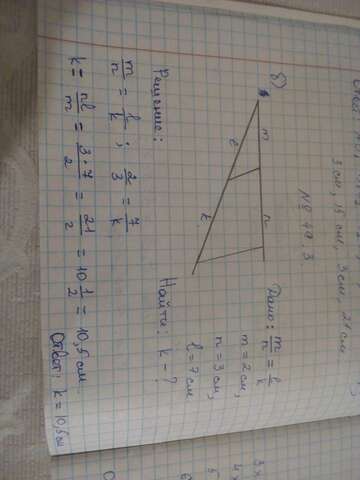 3 см, 15 см. 3 см, 21 см.
№ 49.3
б)
m
n
l
k
Дано: m/n = l/k
m = 2 см,
n = 3 см,
l = 7 см.
Найти: k - ?
Решение:
m/n = l/k ; 2/3 = 7/k
k = nl/m = 3·7/2 = 21/2 = 10 1/2 = 10,5 см.
Ответ: k = 10,5 см